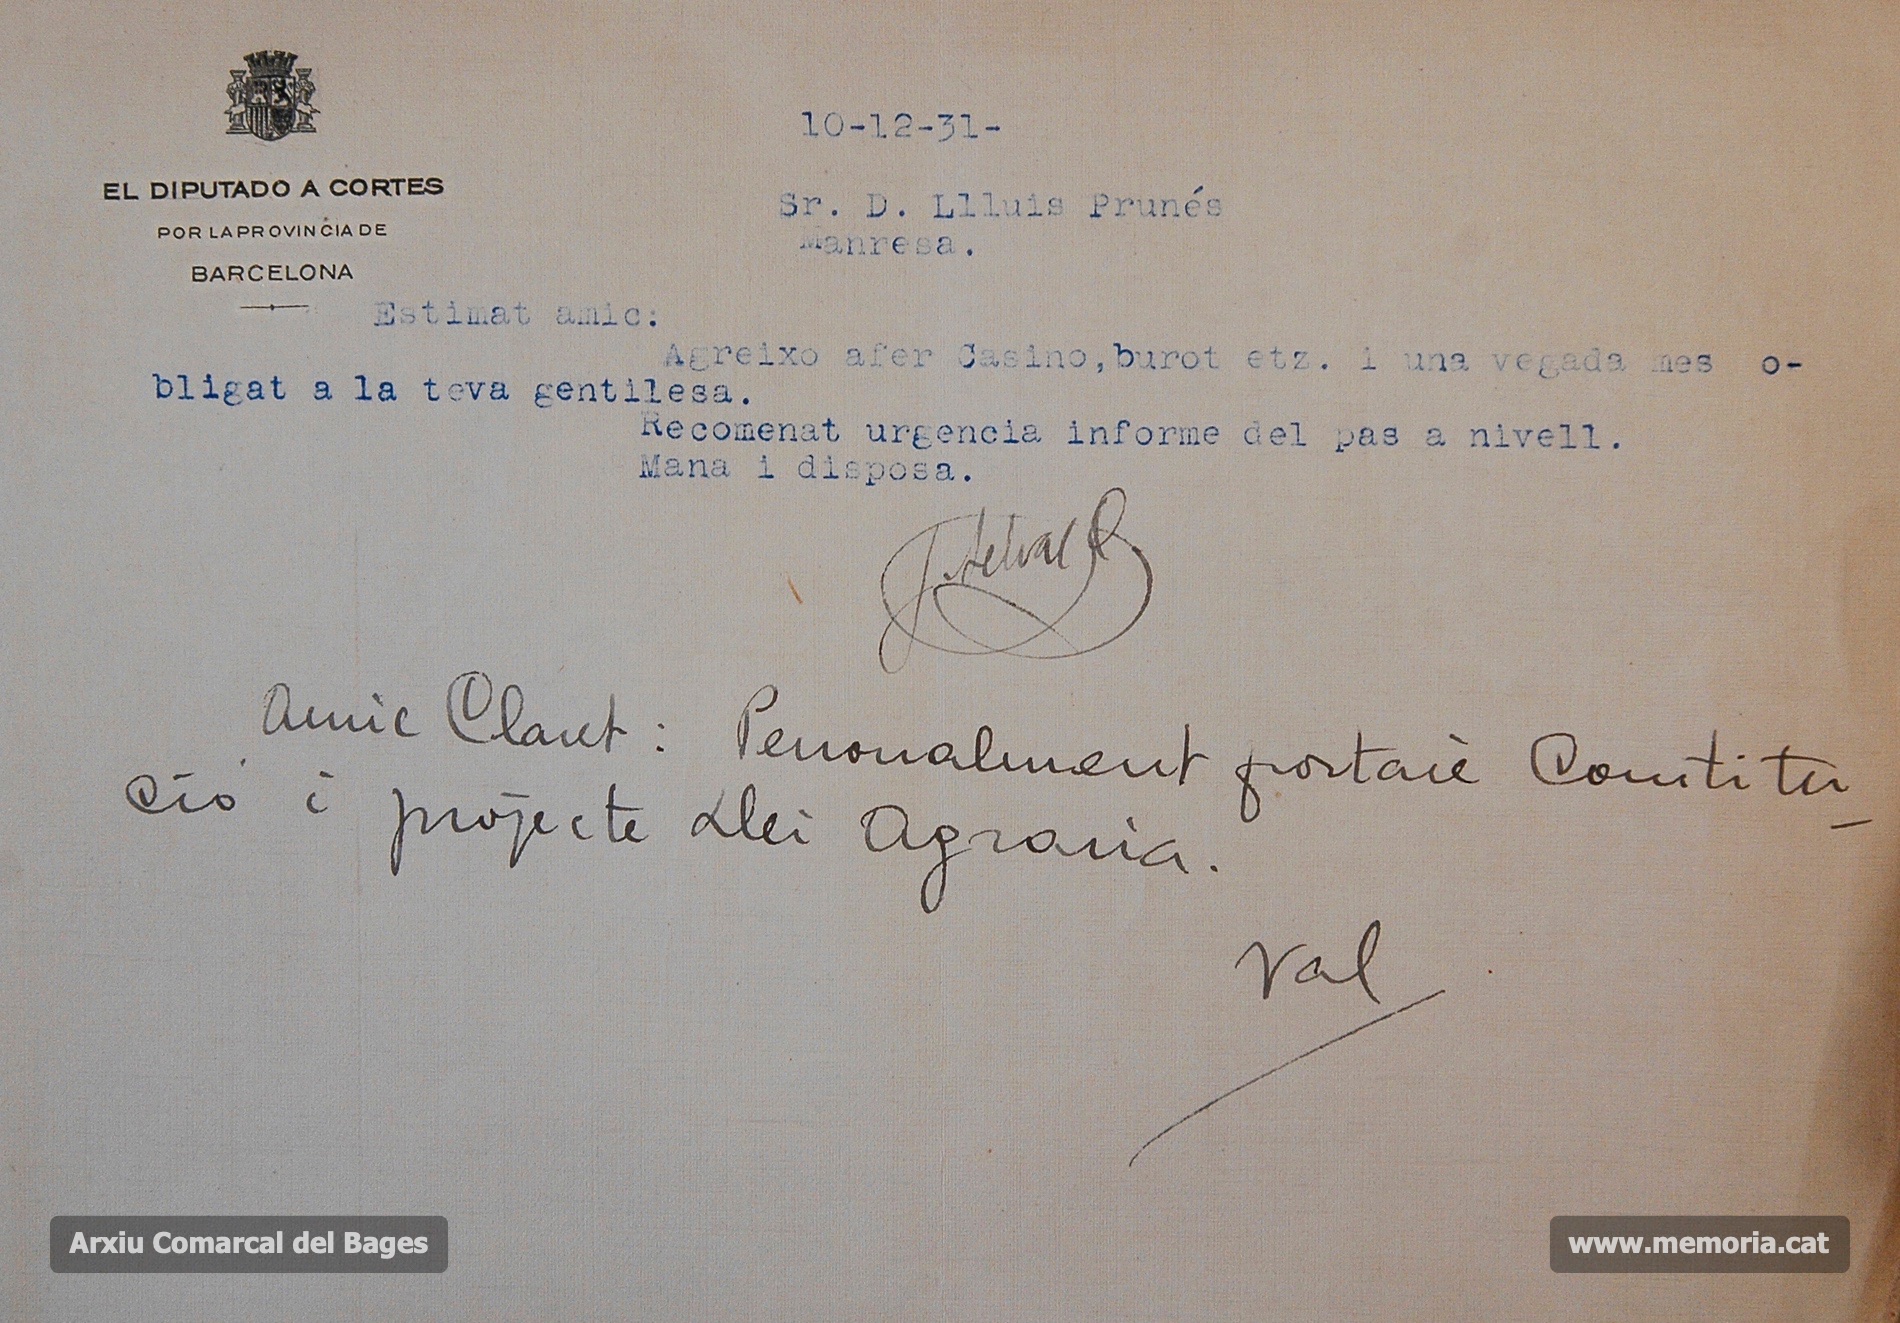 EL DIPUTADO A CORTES
POR LA PROVINCIA DE
BARCELONA
10-12-31-
Sr. D. Llluis Prunés
Manresa.
Estimat amic:
Agreixo afer Casino, burot etz. i una vegada mes o-
bligat a la teva gentilesa.
Recomenat urgencia informe del pas a nivell.
Mana i disposa.
Amic Claret: Personalment portaré Constitu-
ció i projecte Llei Agraria.
Val
Arxiu Comarcal del Bages
www.memoria.cat